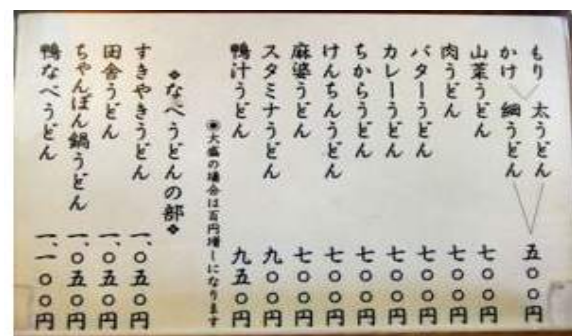 もり 太うどん 五〇〇円
かけ 細うどん
山菜うどん 七〇〇円
肉うどん 七〇〇円
バターうどん 七〇〇円
カレーうどん 七〇〇円
ちからうどん 七〇〇円
けんちんうどん 七〇〇円
麻婆うどん 七〇〇円
スタミナうどん 九〇〇円
鴨汁うどん 九五〇円
◉大盛の場合は百円増しになります
❖なべうどんの部❖
すきやきうどん 一、〇五〇円
田舎うどん 一、〇五〇円
ちゃんぽん鍋うどん 一、〇五〇円
鴨なべうどん 一、一〇〇円